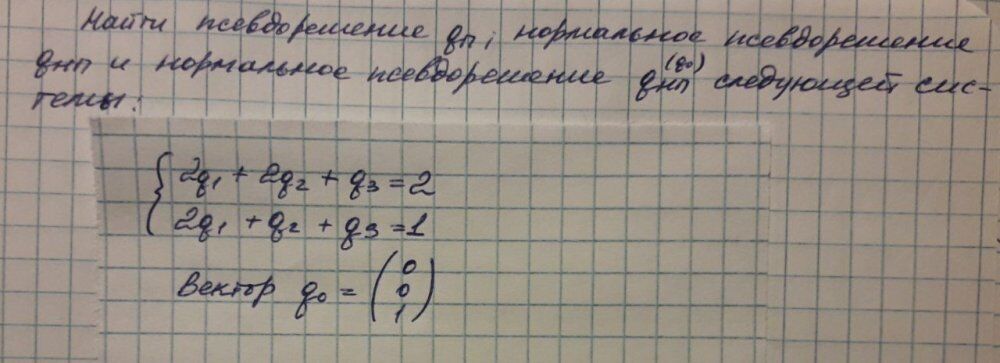 Найти псевдорешение qп, нормальное псевдорешение
qнп и нормальное псевдорешение qнп^(q₀) следующей сис-
темы:
2q₁ + 2q₂ + q₃ = 2
2q₁ + q₂ + q₃ = 1
Вектор q₀ = (0 0 1)